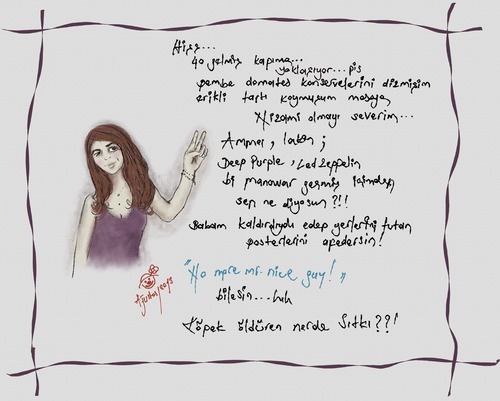 Hişş...
40 gelmiş kapıma...
yaklaşıyor... pis
pembe domates konservelerini dizmişim
erikli tartı koymuşum masaya
Hizami olmayı severim...
Amma, lakin;
Deep Purple, Led Zeppelin
bi manowar geçmiş içimden
sen ne diyosun?!!
Babam kaldırdıydı edep yerlerini tutan
posterlerini afedersin!
"No more mr. nice guy!"
bilesin... huh
Köpek öldüren nerde Sıtkı??!
Ağustos/2013